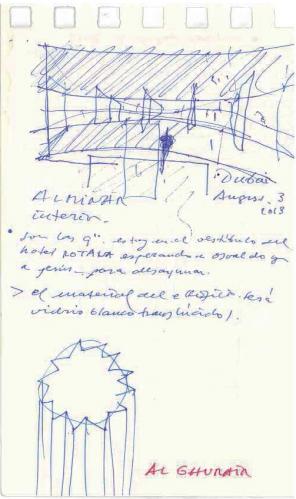 Dubai
August. 3
2013
ALMINAR
interior.
• Son las 9". estoy en el vestíbulo del
hotel ROTANA esperando a osvaldo y
a jesus, para desayunar.
> el material del edificio será
vidrio blanco translúcido/.
AL GHURAIR